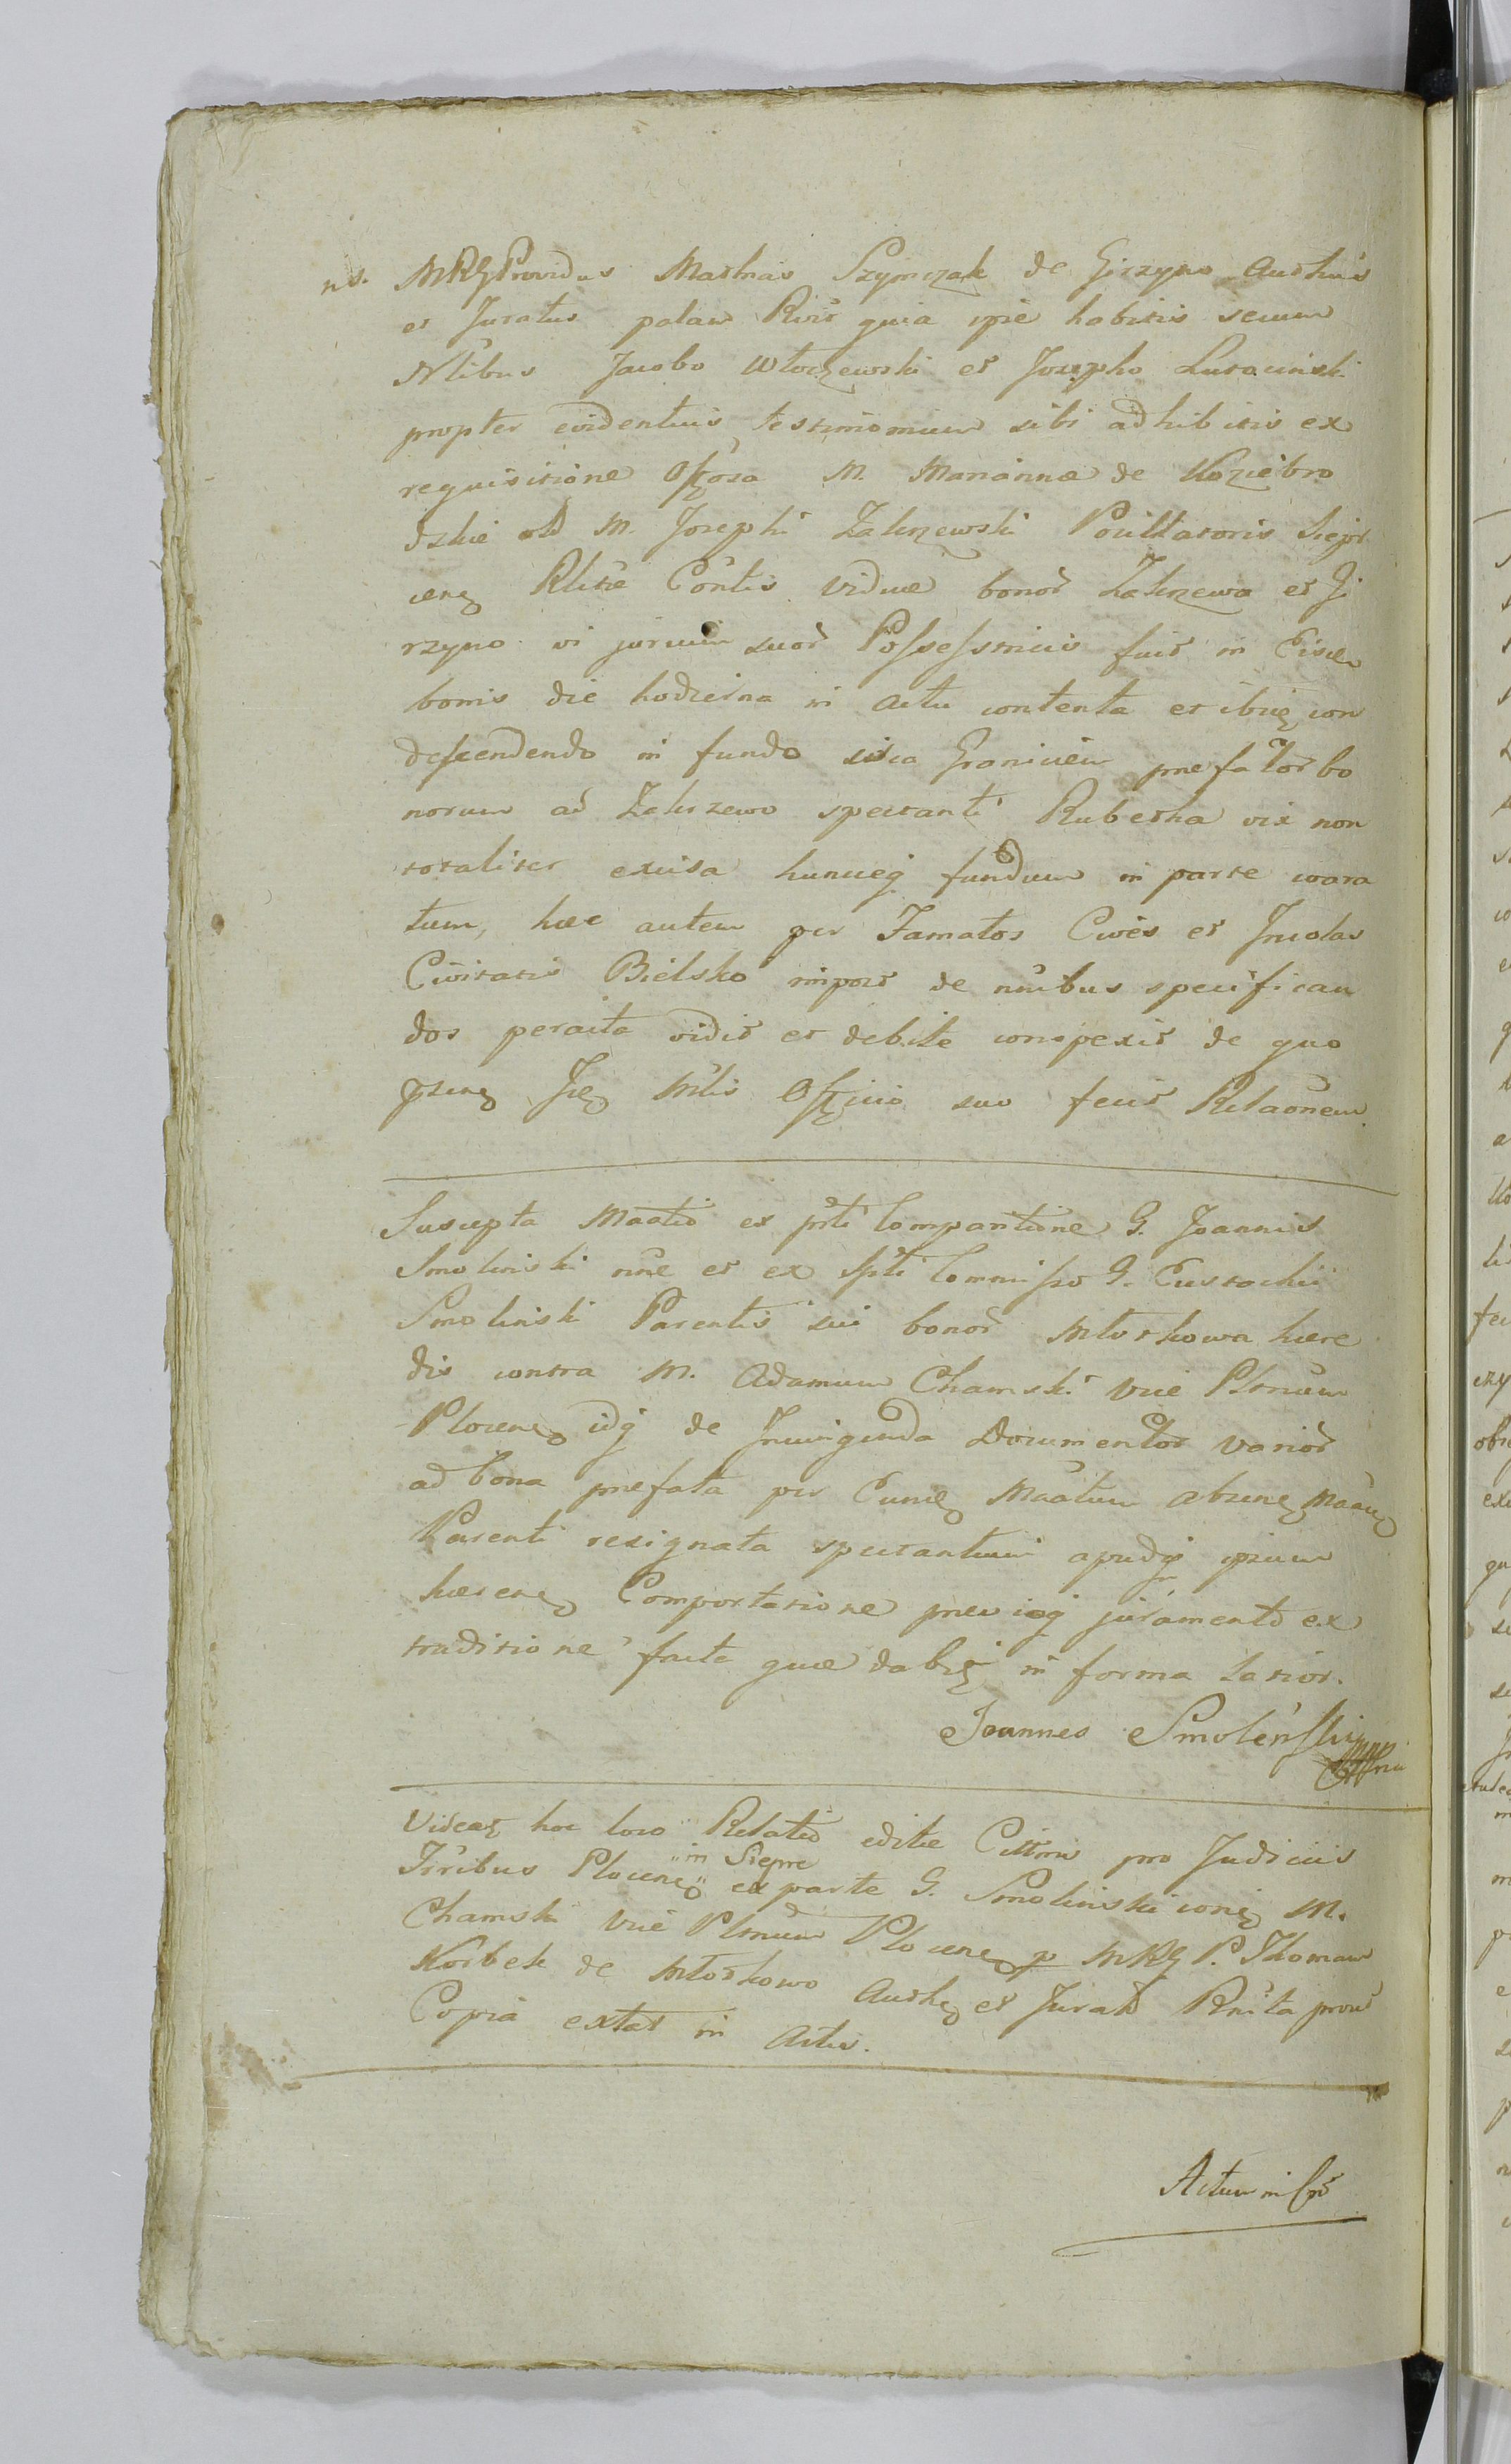 ns. MRG Providus Mathias Szymczak de Girzyno Auth͠us
et Juratus palam R͠vit quia ipse habitis secum
N͠libus Jacobo Włoczewski et Josepho Lutocinski
propter evidentius testimonium sibi adhibitis ex
requisitione Off͠osa M. Mariannæ de Koziebro
dzkie olim M. Josephi Zakrzewski
R͠litæ C͠ontis viduæ bonor͠ Zakrzewo et Gi
rzyno vi jurium suor͠ Possessricis fuit in Eisdem
bonis die hodierna in actu contenta et ibi͠q con
descendendo in fundo circa Graniciem præfator͠ bo
norum ad Zakrzewo spectanti Rubetha vix non
totaliter excisa huncq͠ fundum in parte
tum, hæc autem per Famatos Cives et Incolas
Civitatis Bielsko impost de n͠nibus specifican
dos peracta vidit et debite conspexit de quo
p͠sens Off͠icio suo fecit Rela͠onem.
Suscepta M͠otio ex p͠rti Compartione G. Joannis
Smolinski n͠ne et ex sp͠ti Commisso G. Eustachii
Smolinski Parentis sui bonor͠ Młotkowa hære
dis contra M. Adamum Chamski Vice P͠lnum
Plocens͠ idq͠ de documentor͠ varior͠
ad bona præfata per Eund͠ M͠otum
Parenti resignata spectantium apudq͠ ipsum
hæren͠ Comportatione præviaq͠ juramento ex
traditione facta quæ dabi͠t in forma latior.
Joannes Smoleński mpp
Videat͠ hoc loco Relatio editæ Citt͠nis pro Judiciis
T͠rribus Plocens͠ "in Sierpc" ex parte G. Smolinski con͠a M.
Chamski Vice P͠lnum Plocens͠ p MRG P. Thomam
Korbek de Młotkowo Auth͠ et Jurat͠ R͠nita prout
Copia extat in Actis.
Actum in C͠ro